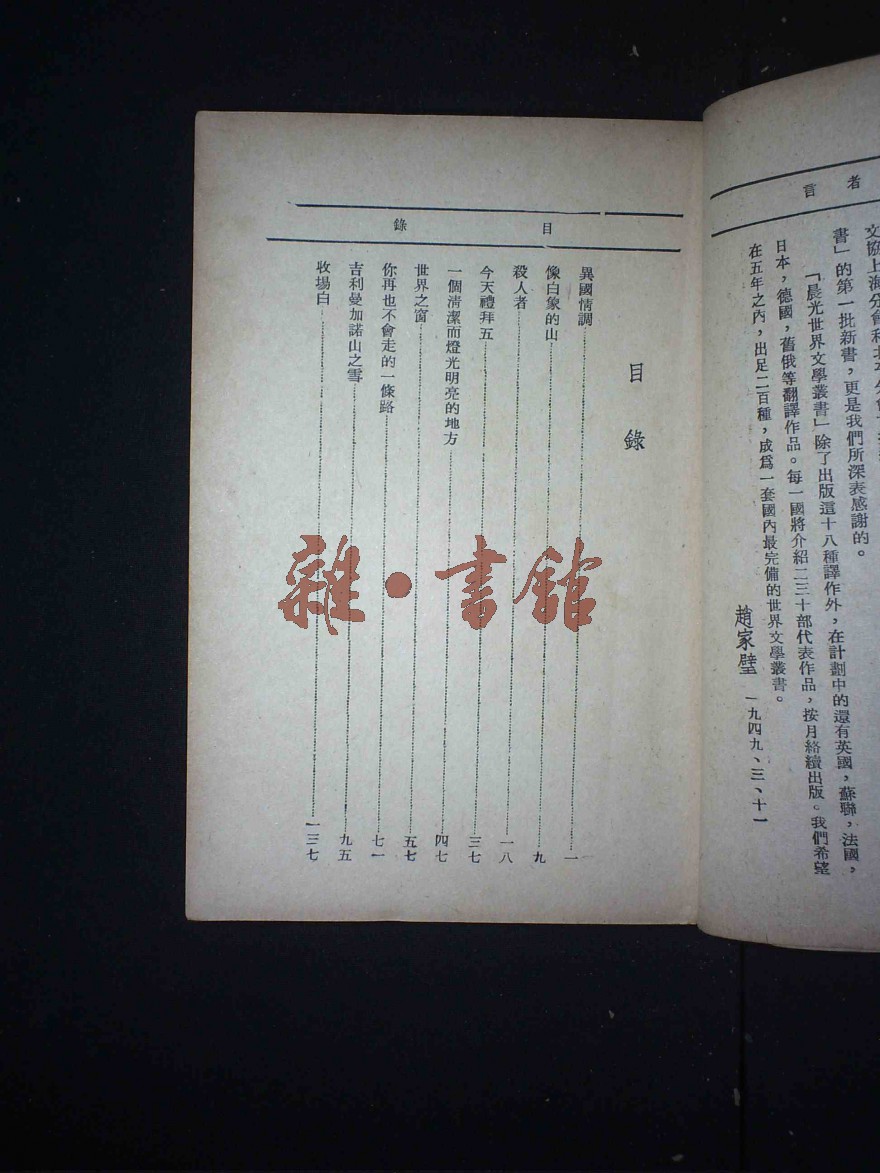 者言
書」的第一批新書，更是我們所深表感謝的。
「晨光世界文學叢書」除了出版這十八種譯作外，在計劃中的還有英國，蘇聯，法國，
日本，德國，舊俄等翻譯作品。每一國將介紹二三十部代表作品，按月絡續出版。我們希望
在五年之內，出足二百種，成爲一套國內最完備的世界文學叢書。
趙家璧 一九四九、三、十一
目錄
目錄
異國情調 一
像白象的山 九
殺人者 一八
今天禮拜五 三七
一個清潔而燈光明亮的地方 四七
世界之窗 五七
你再也不會走的一條路 七一
吉利曼加諾山之雪 九五
收場白 一三七
雜·書館